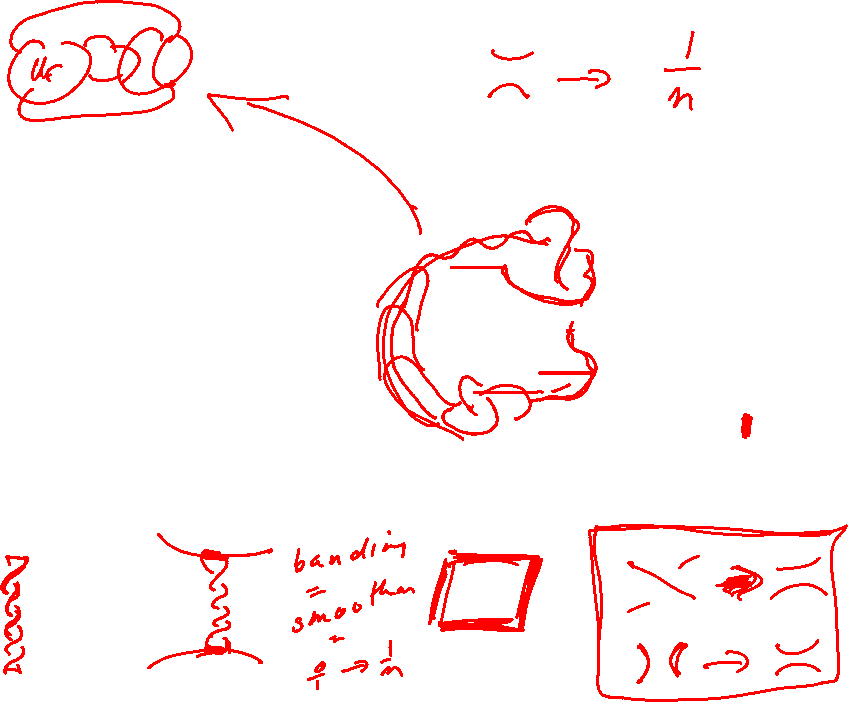 → 1/n
banding
=
smoother
0/1 → 1/n